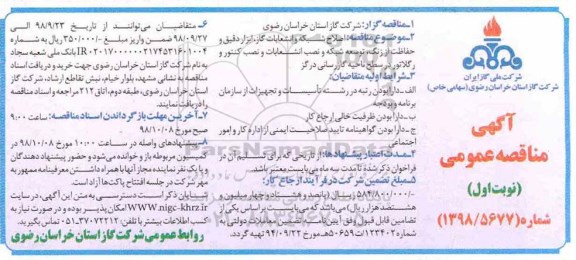 شرکت ملی گاز ایران
شرکت گاز استان خراسان رضوی (سهامی خاص)
آگهی
مناقصه عمومی
(نوبت اول)
شماره (۱۳۹۸/۵۶۷۷)
۱-مناقصه گزار: شرکت گاز استان خراسان رضوی
۲-موضوع مناقصه: اصلاح شبکه و انشعابات گاز، ابزار دقیق و
حفاظت از زنگ، توسعه شبکه و نصب انشعابات و نصب کنتور و
رگلاتور در سطح ناحیه گازرسانی درگز
۳-شرایط اولیه متقاضیان:
الف-دارا بودن رتبه در رشته تأسیسات و تجهیزات از سازمان
برنامه و بودجه
ب-دارا بودن ظرفیت خالی ارجاع کار
ج-دارا بودن گواهینامه تایید صلاحیت ایمنی از اداره کار و امور
اجتماعی
۴-مدت اعتبار پیشنهادها: از تاریخی که برای تسلیم آن در
فراخوان ذکر شده تا مدت سه ماه می‌بایست معتبر باشد.
۵-مبلغ تضمین شرکت در فرآیند ارجاع کار:
ریال (پانصد و هشتاد و چهار میلیون و
هشتصد هزار ریال) می باشد که می‌بایست بر اساس یکی از
تضامین قابل قبول وفق آیین نامه تضمین معاملات دولتی به
شماره ۱۲۳۴۰۲/ت۵۰۶۵۹هـ مورخ ۹۴/۰۹/۲۲ تهیه گردد.
۶- متقاضیان می‌توانند از تاریخ ۹۸/۹/۲۳ الی
۹۸/۰۹/۲۷ ضمن واریز مبلغ ۳۵۰/۰۰۰/- ریال به شماره
بانک ملی شعبه سجاد
به نام شرکت گاز استان خراسان رضوی جهت خرید و دریافت اسناد
مناقصه به نشانی مشهد، بلوار خیام، نبش تقاطع ارشاد، شرکت گاز
استان خراسان رضوی، طبقه دوم، اتاق ۲۱۲ مراجعه و اسناد مناقصه
را دریافت نمایند.
۷-آخرین مهلت بارگزدن اسناد مناقصه: ساعت ۹:۰۰
صبح مورخ ۹۸/۱۰/۰۸
۸-پیشنهادهای واصله در ساعت ۱۰:۰۰ مورخ ۹۸/۱۰/۰۸ در
کمیسیون مربوطه باز و خوانده می‌شود و حضور پیشنهاد دهندگان
و یا یک نفر نماینده مجاز آنها با همراه داشتن معرفینامه ممهور به
مهر شرکت در جلسه افتتاح پاکت‌ها آزاد است.
شایان ذکر است دسترسی به متن این آگهی، در سایت
WWW.nigc-khrz.ir امکان پذیر بوده و در صورت نیاز به
کسب اطلاعات بیشتر با تلفن: ۳۷۰۷۲۲۱۲-۰۵۱ تماس بگیرید.
روابط عمومی شرکت گاز استان خراسان رضوی